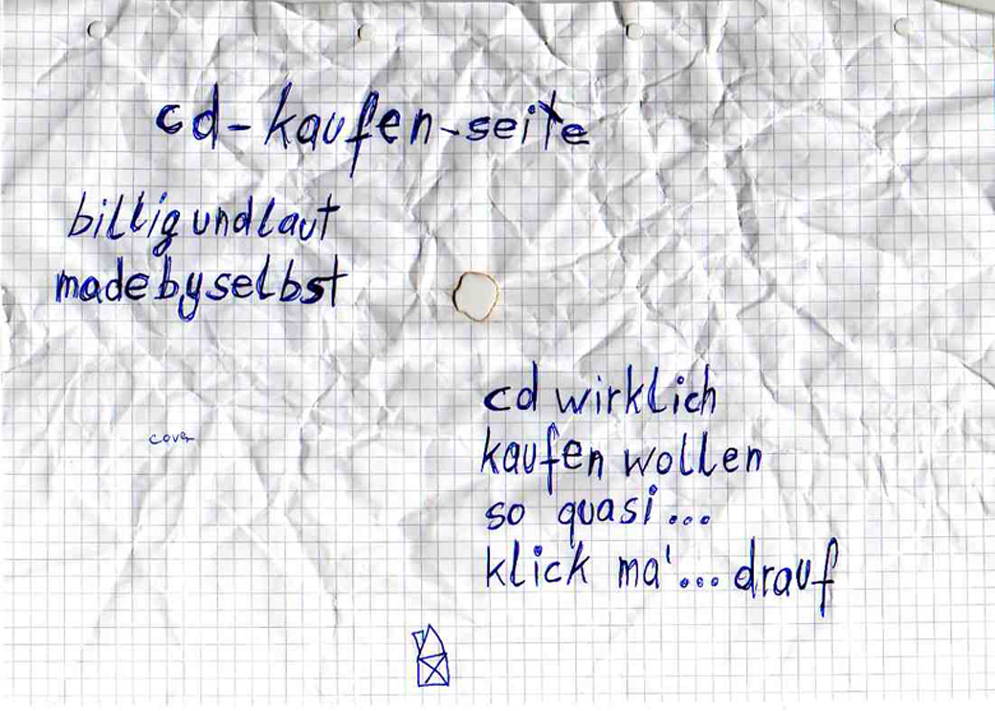 cd-kaufen-seite
billig und laut
made by selbst
cd wirklich
kaufen wollen
so quasi...
klick ma'... drauf
cover